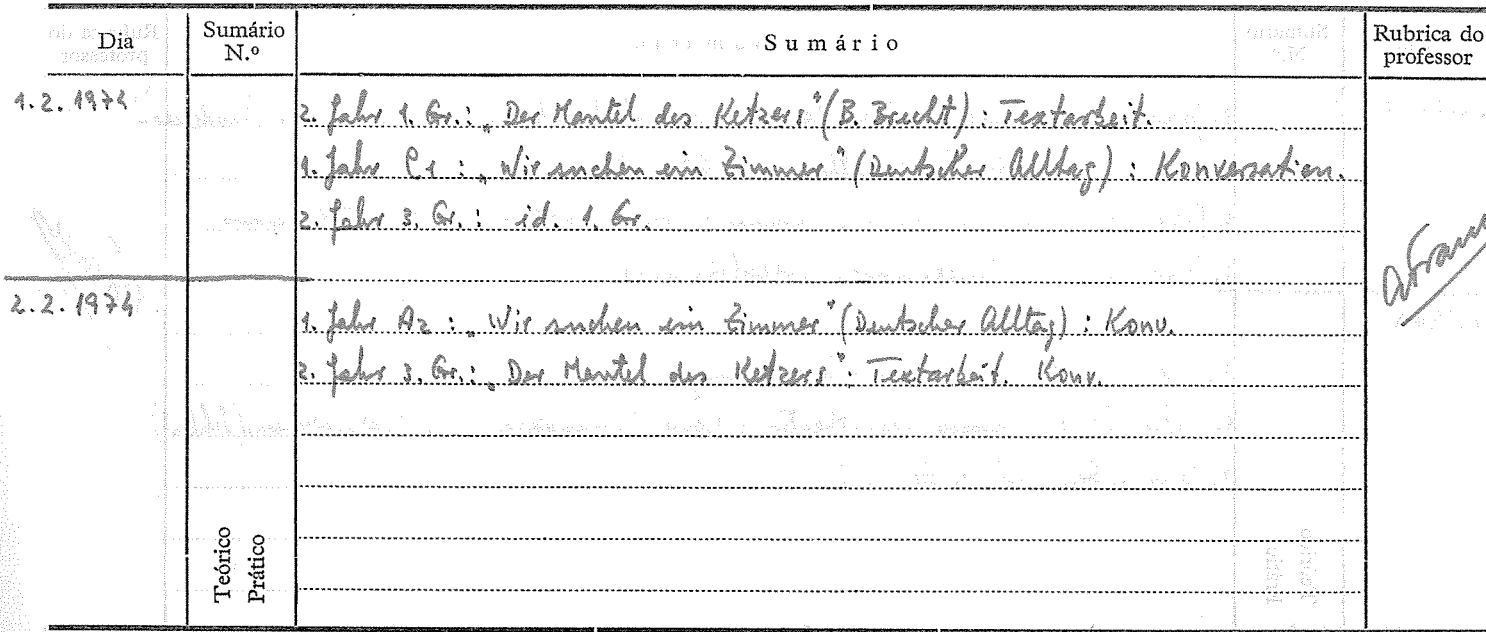 Dia Sumário N.º Sumário Rubrica do professor
1.2.1974 2. Jahr 1. Gr.: „Der Mantel des Ketzers" (B. Brecht): Textarbeit.
1. Jahr C1: „Wir suchen ein Zimmer" (Deutscher Alltag): Konversation.
2. Jahr 3. Gr.: id. 1. Gr.
2.2.1974 1. Jahr A2: „Wir suchen ein Zimmer" (Deutscher Alltag): Konv.
2. Jahr 3. Gr.: „Der Mantel des Ketzers": Textarbeit. Konv.
Teórico
Prático